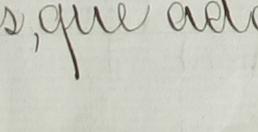 s, que ado